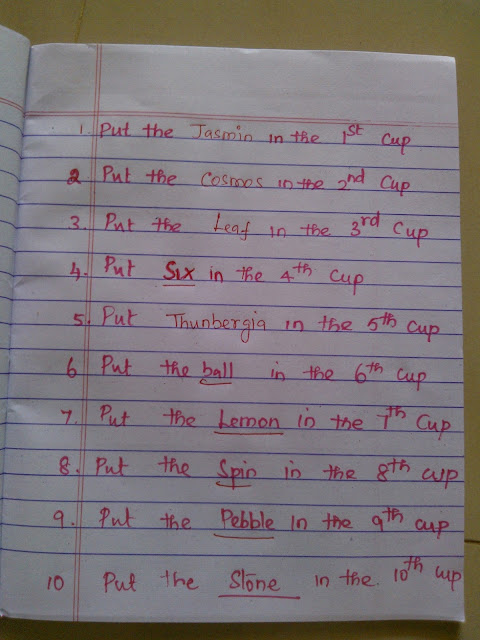 1 Put the Jasmin in the 1st Cup
2 Put the Cosmos in the 2nd Cup
3. Put the Leaf in the 3rd Cup
4. Put Six in the 4th Cup
5. Put Thunbergia in the 5th Cup
6 Put the ball in the 6th Cup
7. Put the Lemon in the 7th Cup
8. Put the Spin in the 8th cup
9. Put the Pebble in the 9th cup
10 Put the Stone in the 10th cup